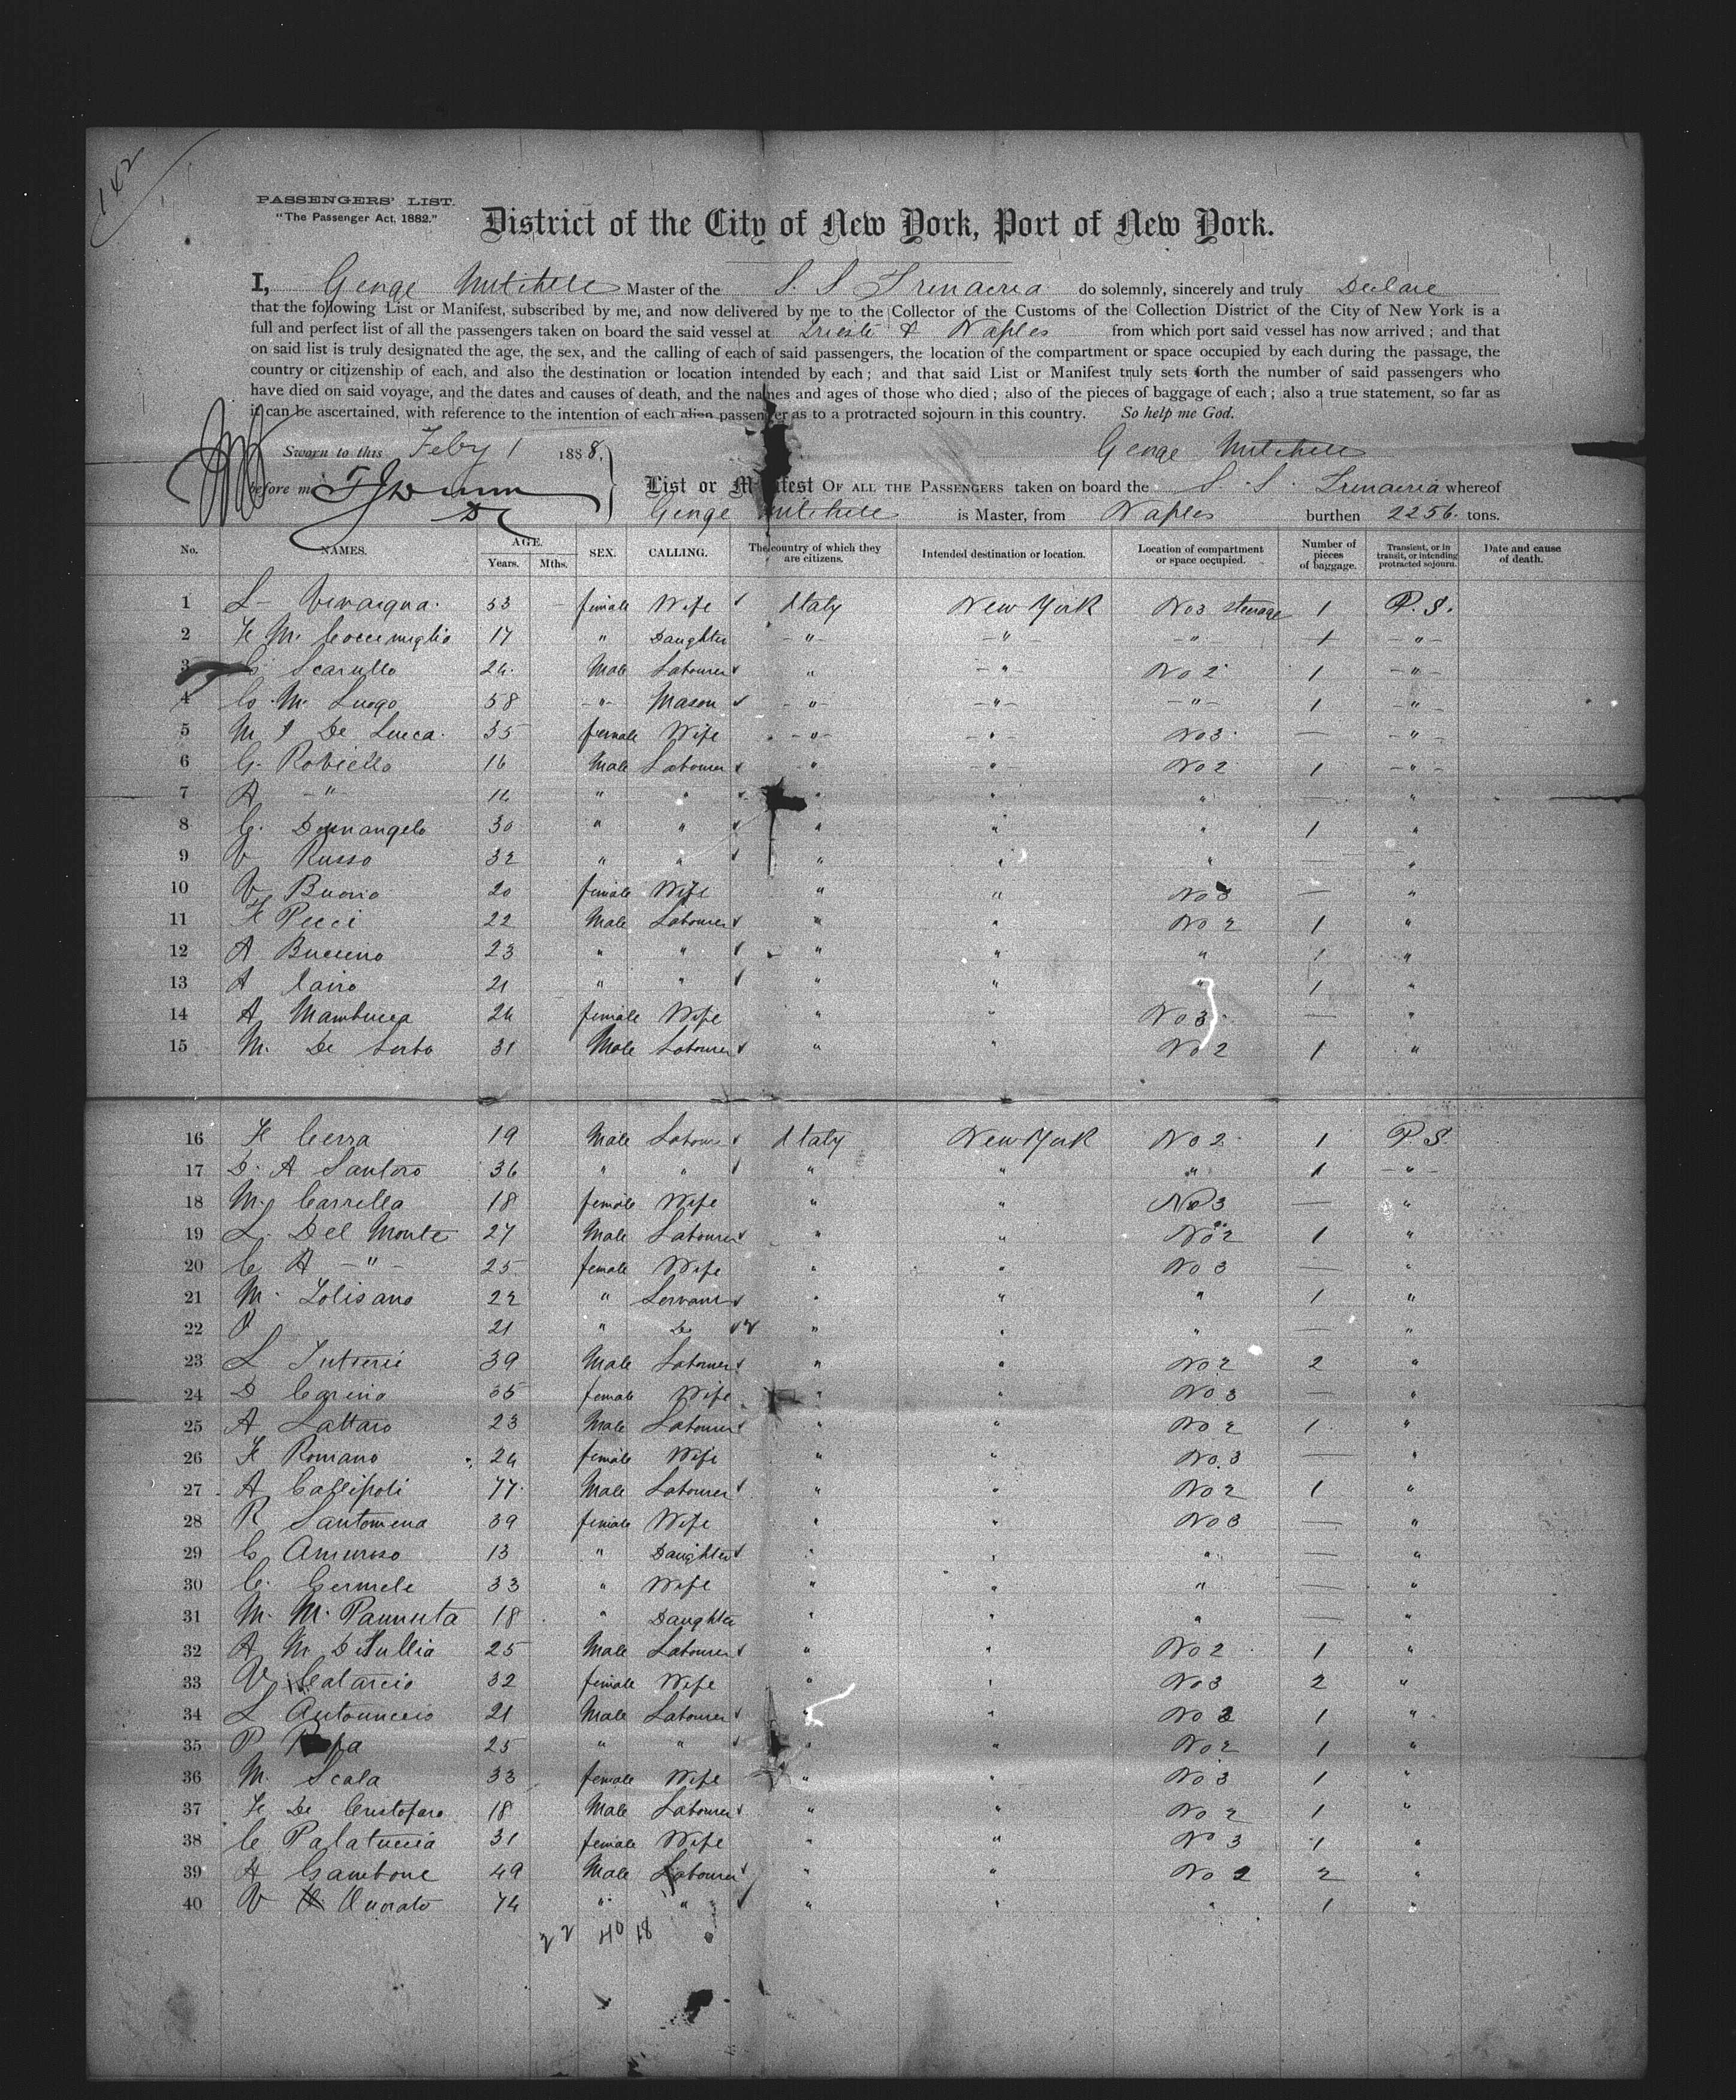 142
PASSENGERS' LIST.
"The Passenger Act, 1882."
District of the City of New York, Port of New York.
I, George Mitchell Master of the S. S Trinacria do solemnly, sincerely and truly Declare
that the following List or Manifest, subscribed by me, and now delivered by me to the Collector of the Customs of the Collection District of the City of New York is a
full and perfect list of all the passengers taken on board the said vessel at Trieste & Naples from which port said vessel has now arrived; and that
on said list is truly designated the age, the sex, and the calling of each of said passengers, the location of the compartment or space occupied by each during the passage, the
country or citizenship of each, and also the destination or location intended by each; and that said List or Manifest truly sets forth the number of said passengers who
have died on said voyage, and the dates and causes of death, and the names and ages of those who died; also of the pieces of baggage of each; also a true statement, so far as
it can be ascertained, with reference to the intention of each alien passenger as to a protracted sojourn in this country. So help me God.
Sworn to this Feby 1 1888. George Mitchell
before me
List or Manifest OF ALL THE PASSENGERS taken on board the S. S. Trinacria whereof
George Mitchell is Master, from Naples burthen 2256. tons.
No. NAMES. AGE. Years. Mths. SEX. CALLING. The country of which they are citizens. Intended destination or location. Location of compartment or space occupied. Number of pieces of baggage. Transient, or in transit, or intending protracted sojourn. Date and cause of death.
1 L - 53 - female Wife Italy New York No 3 steerage 1 P. S.
2 F M. Coccimiglio 17 " Daughter - " - - " - - " - 1 - " -
3 Scarullo 24 Male Labourer " - " - No 2 1 - " -
4 G. M. Luogo 58 - " - Mason - " - - " - - " - 1 - " -
5 M I De Lucca 35 female Wife - " - - " - No 3 — - " -
6 G. Robiello 16 Male Labourer " - " - No 2 1 - " -
7 A - " - " " " " " — "
8 G. Donnangelo 30 " " " " " 1 "
9 V Russo 32 " " " " " — "
10 V Buono 20 female Wife " " No 3 — "
11 F Pecci 22 Male Labourer " " No 2 1 "
12 A Buccino 23 " " " " " 1 "
13 A 21 " " " " " 1 "
14 A Mambucca 24 female Wife " " No 3 — "
15 M. De 31 Male Labourer " " No 2 1 "
16 F Cerra 19 Male Labour Italy New York No 2 1 P. S.
17 D. A Santoro 36 " " " " " 1 - " -
18 M. Carrella 18 female Wife " " No 3 — "
19 L. Del Monte 27 Male Labourer " " No 2 1 "
20 C A - " - 25 female Wife " " No 3 — "
21 M. Tolisano 22 " Servant " " " 1 "
22 21 " Do " " " — "
23 L 39 Male Labourer " " No 2 2 "
24 D Carino 35 female Wife " " No 3 — "
25 A Lattaro 23 Male Labourer " " No 2 1 "
26 F Romano 24 female Wife " " No. 3 — "
27 A Callipoli 77 Male Labourer " " No 2 1 "
28 R Santomena 39 female Wife " " No 3 — "
29 C Amoroso 13 " Daughter " " " — "
30 C. Germele 33 " Wife " " " — "
31 M. M. Pannuta 18 " Daughter " " " — "
32 A M DiTullia 25 Male Labourer " " No 2 1 "
33 V Catarcio 32 female Wife " " No 3 2 "
34 L Antonuccio 21 Male Labourer " " No 2 1 "
35 P 25 " " " " No 2 1 "
36 M. Scala 33 female Wife " " No 3 1 "
37 F De Cristofaro 18 Male Labourer " " No 2 1 "
38 C Palatucia 31 female Wife " " No 3 1 "
39 A Gambone 49 Male Labourer " " No 2 2 "
40 V Onorato 74 " " " " " 1 "
22 40 18